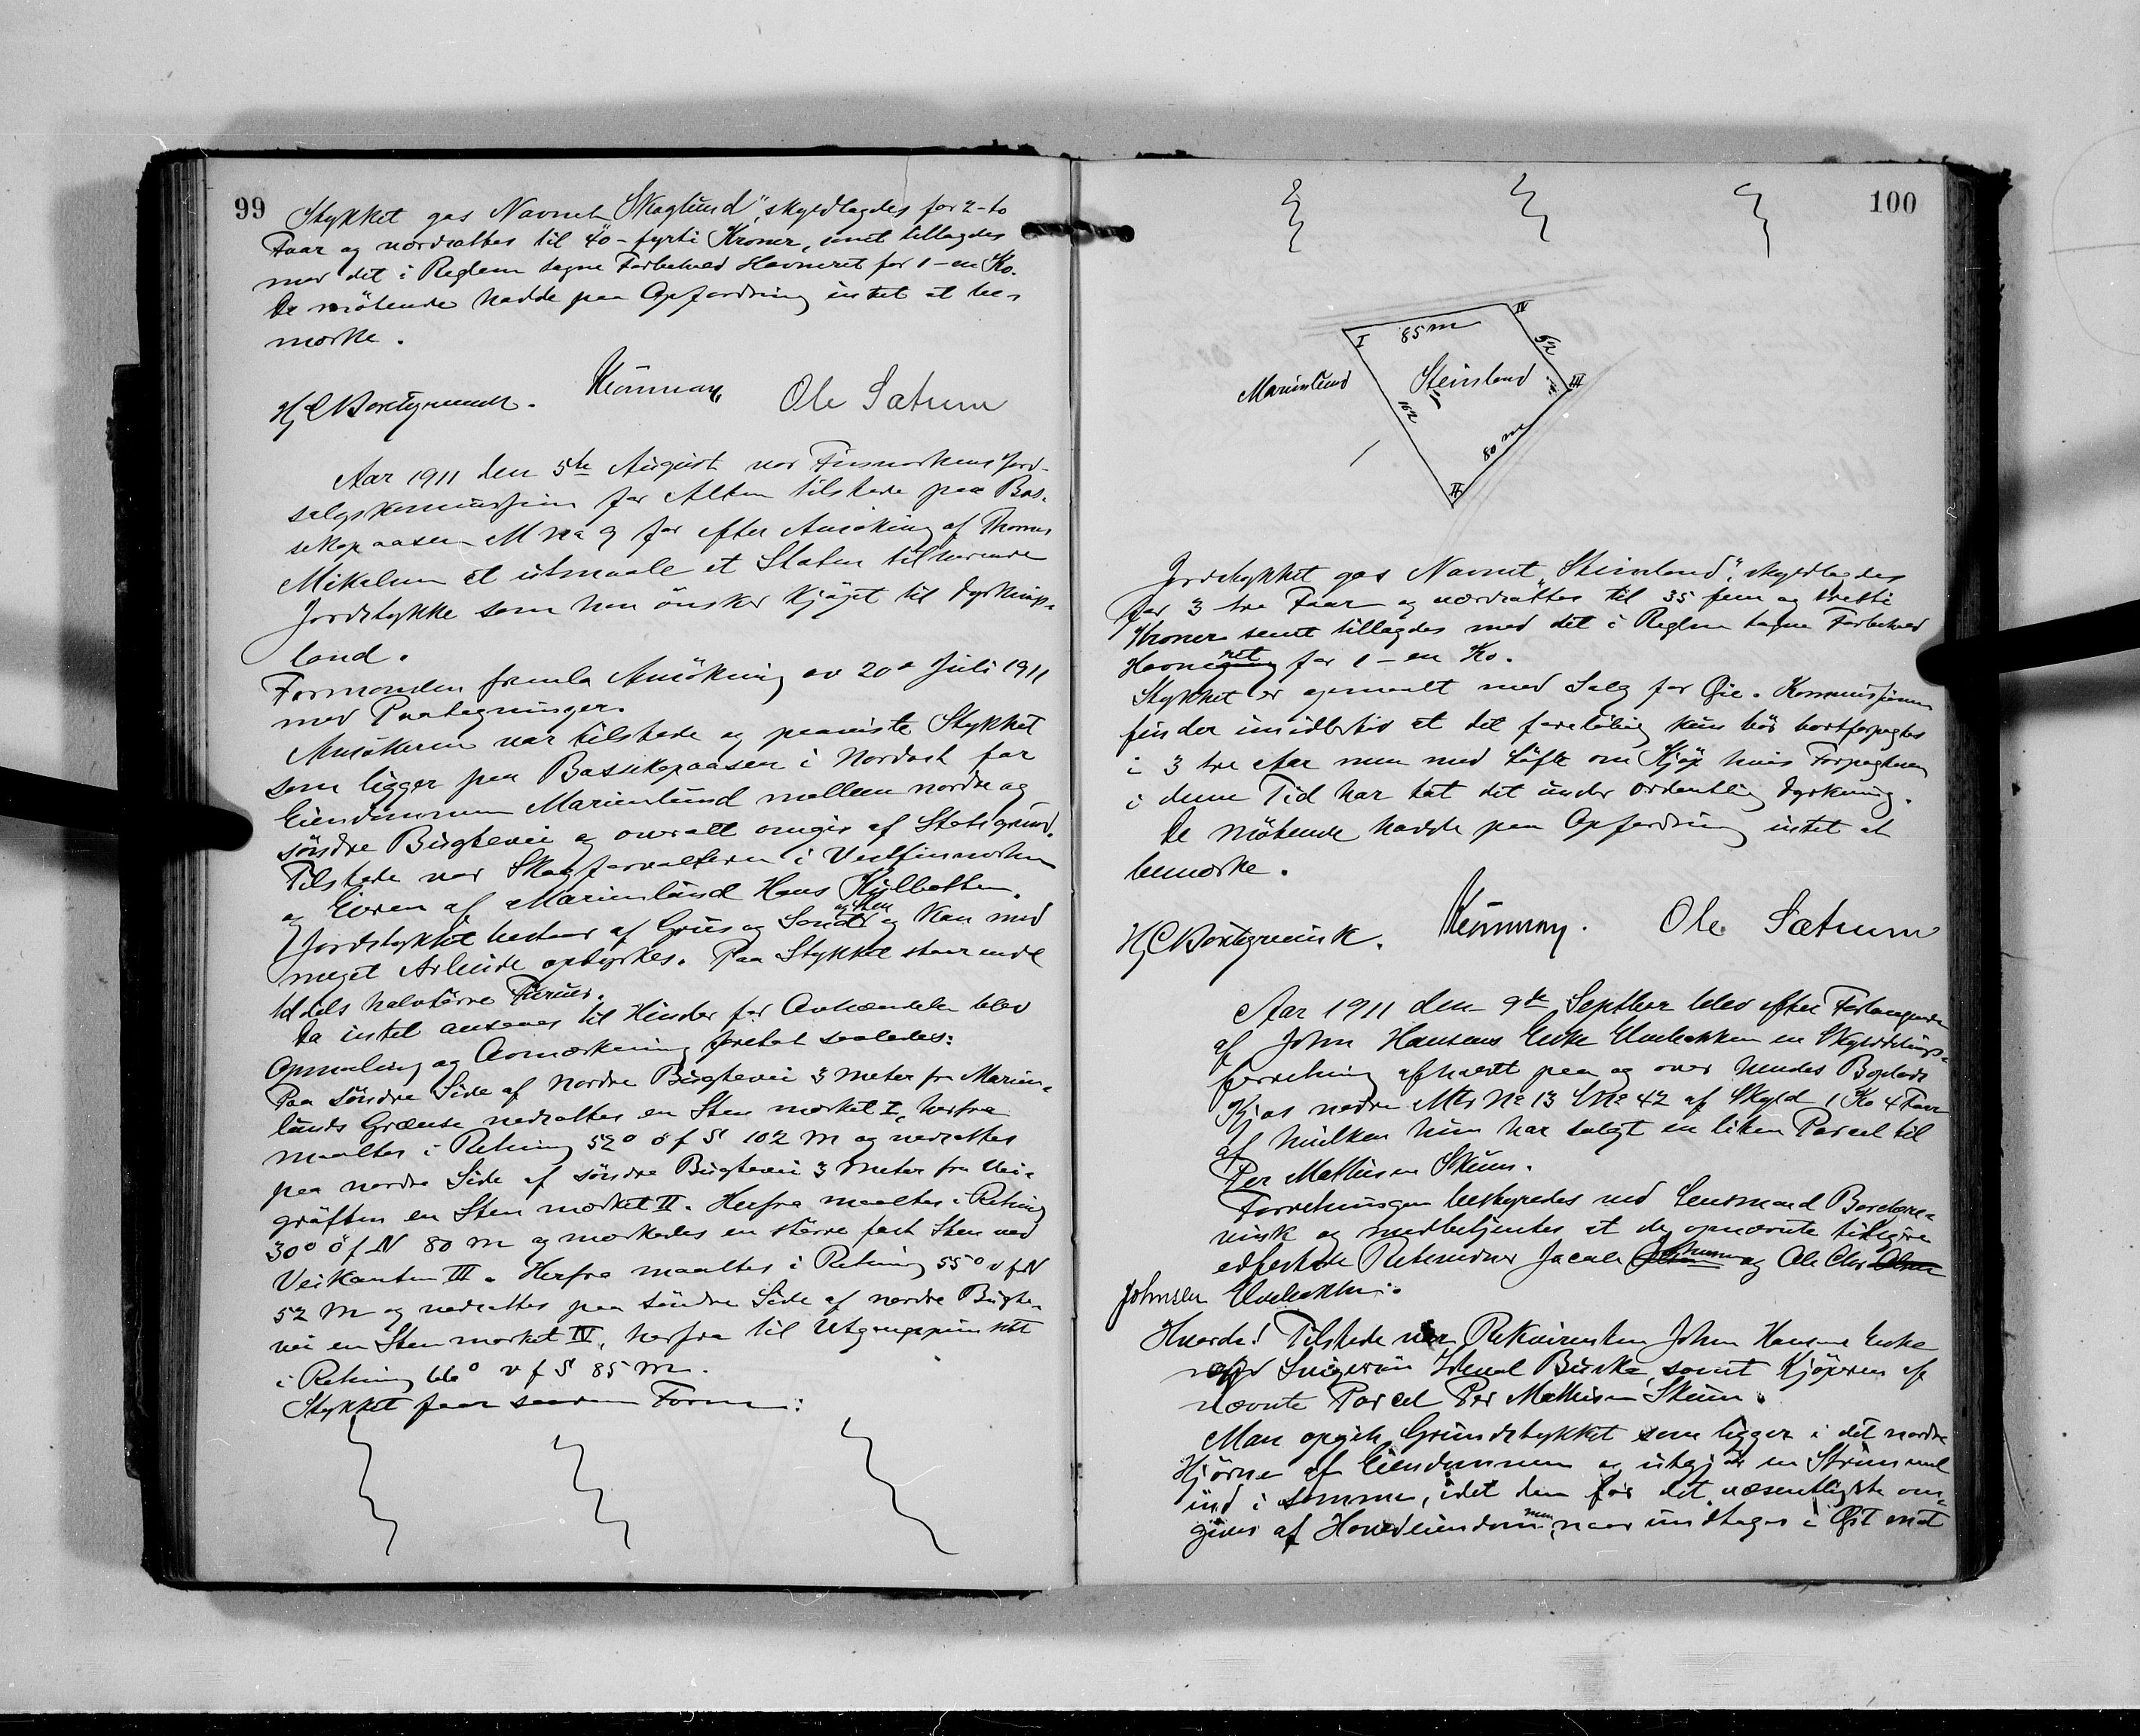 99
Stykket gas Navnet "Skoglund", skyldlagdes for 2-to
Faar og værdsattes til 40-fyrti Kroner, samt tillagdes
med det i Reglen tagne Forbehold Havneret for 1-en Ko.
De mötende hadde paa Opfordring intet at be-
mærke.
Ole Sætrum
Aar 1911 den 5te August var Finmarkens Jord-
salgskommission for Alten tilstede paa Bos-
sekopaasen M No 9 for efter Ansökning af Thomas
Mikalsen at utmaale et Staten tilhørende
Jordstykke som han önsker kjöpt til Dyrknings-
land.
Formanden fremla Ansökning av 20de Juli 1911
med Paategninger.
Ansökeren var tilstede og paaviste Stykket
som ligger paa Bossekopaasen i Nordost for
Eiendommen Marienlund mellem nordre og
söndre Bugtevei og overalt omgis af Statsgrund.
Tilstede var Skogforvalteren i Vestfinmarken
og Eieren af Marienlund Hans Kjelbotten.
Jordstykket bestaar af Grus og Sand og Sten og kan med
meget Arbeide opdyrkes. Paa Stykket staar endel
tildels halvtörre Furuer.
Da intet ansaaes til Hinder for Avhændelse blev
Opmaaling og Avmærkning foretat saaledes:
Paa söndre Side af Nordre Bugtevei 3 meter fra Marien-
lunds Grænse nedsattes en Sten mærket I, herfra
maaltes i Retning 52° ö f S 102 m og nedsattes
paa nordre Side af söndre Bugtevei 3 meter fra Vei-
gröften en Sten mærket II. Herfra maaltes i Retning
30° ö f N 80 m og mærkedes en större fast Sten ved
Veikanten III. Herfra maaltes i Retning 55° v f N
52 m og nedsattes paa söndre Side af nordre Bugte-
vei en Sten mærket IV, herfra til Utgangspunktet
i Retning 66° v f S 85 m.
Stykket faar saadan Form:
100
I
85 m
IV
52
III
Steinland
Marienlund
102
80 m
II
Jordstykket gas Navnet "Steinland", skyldlagdes
for 3 tre Faar og værdsattes til 35 fem og tretti
Kroner samt tillagdes med det i Reglen tagne Forbehold
Havneret for 1-en Ko.
Stykket er opmaalt med Salg for Öie. Kommissionen
finder imidlertid at det foreløbig kun bör bortforpagtes
i 3 tre Aar men med Löfte om Kjöp hvis Forpagteren
i denne Tid har tat det under ordentlig Dyrkning.
De Mötende hadde paa Opfordring intet at
bemærke.
Ole Sætrum
Aar 1911 den 9de Septber blev efter Forlangende
af John Hansens Enke Elvebakken en Skylddelings-
forretning afholdt paa og over hendes Boplads
Kjøs nedre Mtr No 13 LNo 42 af Skyld 1 Ko 4 Faar
af hvilken hun har solgt en liten Parcel til
Per Mathisen Skum.
Forretningen bestyredes ved Lensmand Bordgre-
vink og medbetjentes af de opnævnte tidligere
edfæstede Retsmænd Jacob Johnsen og Ole Chr
Johnsen Elvebakken.
Hvorda! Tilstede var Rekvirenten John Hansens Enke
ved Svigersön Buska samt Kjöperen af
nævnte Parcel Per Mathisen Skum.
Man opgik Grundstykket som ligger i det nordre
Hjörne af Eiendommen og utgjör en Strimmel
ind i samme, idet den for det væsentligste om-
gives af Hovedeiendommen, naar undtages i Öst mot